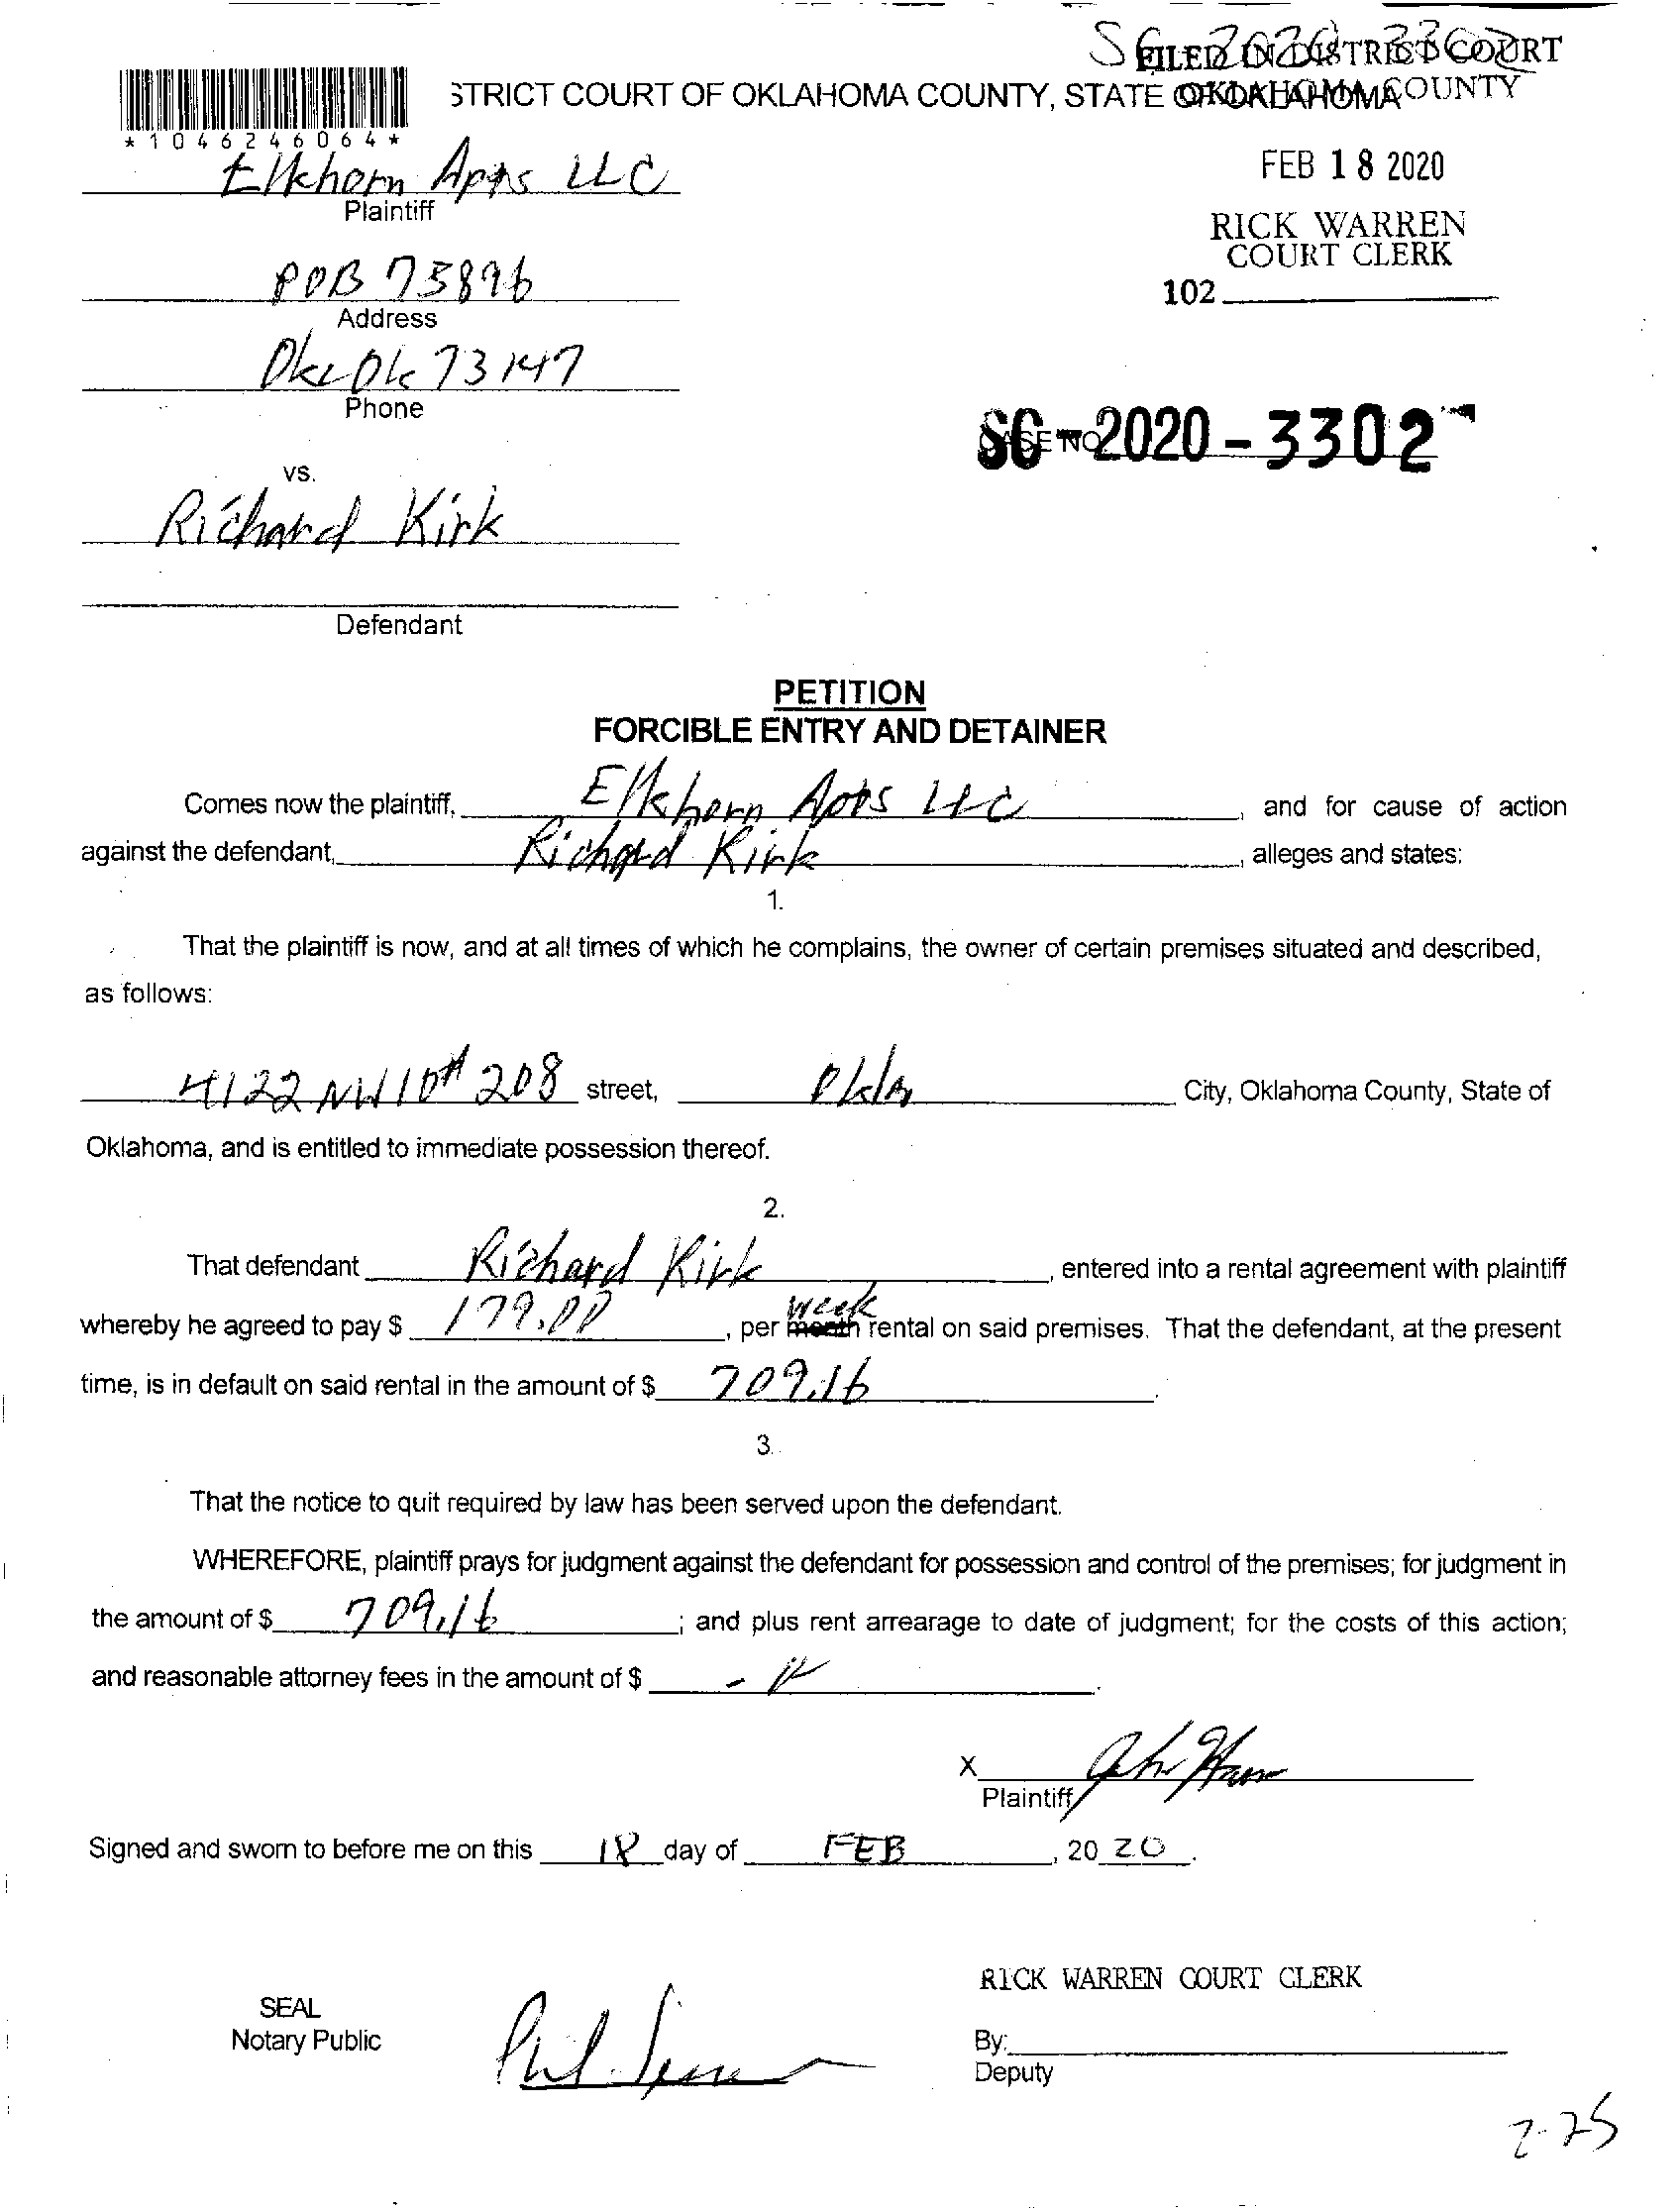 SC-2020-3302
FILED IN DISTRICT COURT
STRICT COURT OF OKLAHOMA COUNTY, STATE OF OKLAHOMA
OKLAHOMA COUNTY
*1046246064*
FEB 18 2020
Elkhorn Apts LLC
Plaintiff
RICK WARREN
COURT CLERK
POB 75896
102
Address
OKC OK 73147
Phone
CASE NO.
SC-2020-3302
vs.
Richard Kirk
Defendant
PETITION
FORCIBLE ENTRY AND DETAINER
Comes now the plaintiff, Elkhorn Apts LLC, and for cause of action
against the defendant, Richard Kirk, alleges and states:
1.
That the plaintiff is now, and at all times of which he complains, the owner of certain premises situated and described,
as follows:
4122 NW 10 # 208 street, Okla City, Oklahoma County, State of
Oklahoma, and is entitled to immediate possession thereof.
2.
That defendant Richard Kirk, entered into a rental agreement with plaintiff
whereby he agreed to pay $ 179.00, per month week rental on said premises. That the defendant, at the present
time, is in default on said rental in the amount of $ 709.16.
3.
That the notice to quit required by law has been served upon the defendant.
WHEREFORE, plaintiff prays for judgment against the defendant for possession and control of the premises; for judgment in
the amount of $ 709.16; and plus rent arrearage to date of judgment; for the costs of this action;
and reasonable attorney fees in the amount of $
X
Plaintiff
Signed and sworn to before me on this 18 day of FEB, 2020.
RICK WARREN COURT CLERK
SEAL
Notary Public
By:
Deputy
2-25